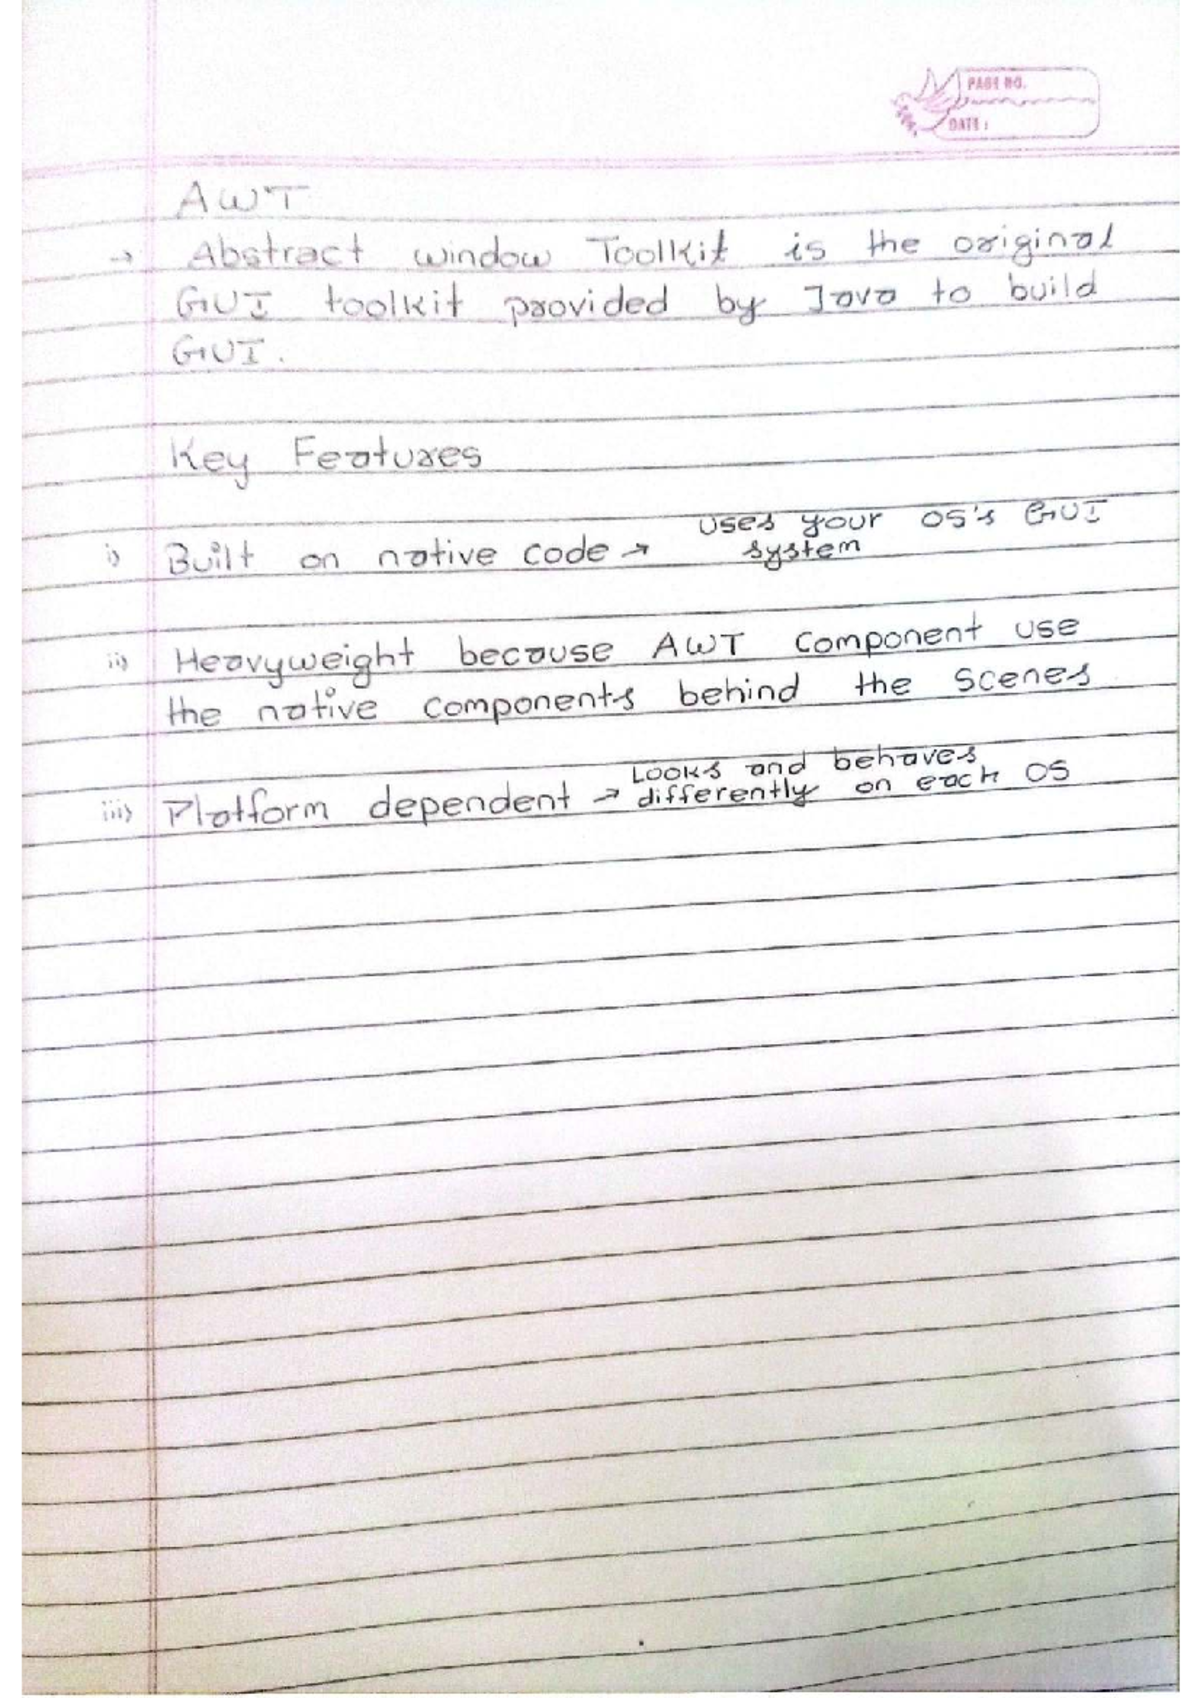 PAGE NO.
DATE :
AWT
→ Abstract window Toolkit is the original
GUI toolkit provided by Java to build
GUI.
Key Features
i) Built on native code → uses your OS's GUI
system
ii) Heavyweight because AWT component use
the native components behind the scenes
iii) Platform dependent → Looks and behaves
differently on each OS